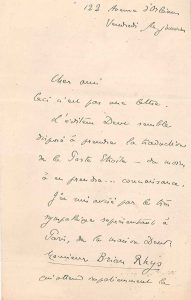 122 Avenue d'Orléans
Vendredi 1er janvier
Cher ami
Ceci n'est pas une lettre.
L'éditeur Dent semble
disposé à prendre la traduction
de la Porte Etroite - du moins
à en prendre... connaissance.
J'en suis avisé par le très
sympathique représentant à
Paris, de la maison Dent,
Monsieur Brian Rhys
qui attend impatiemment la